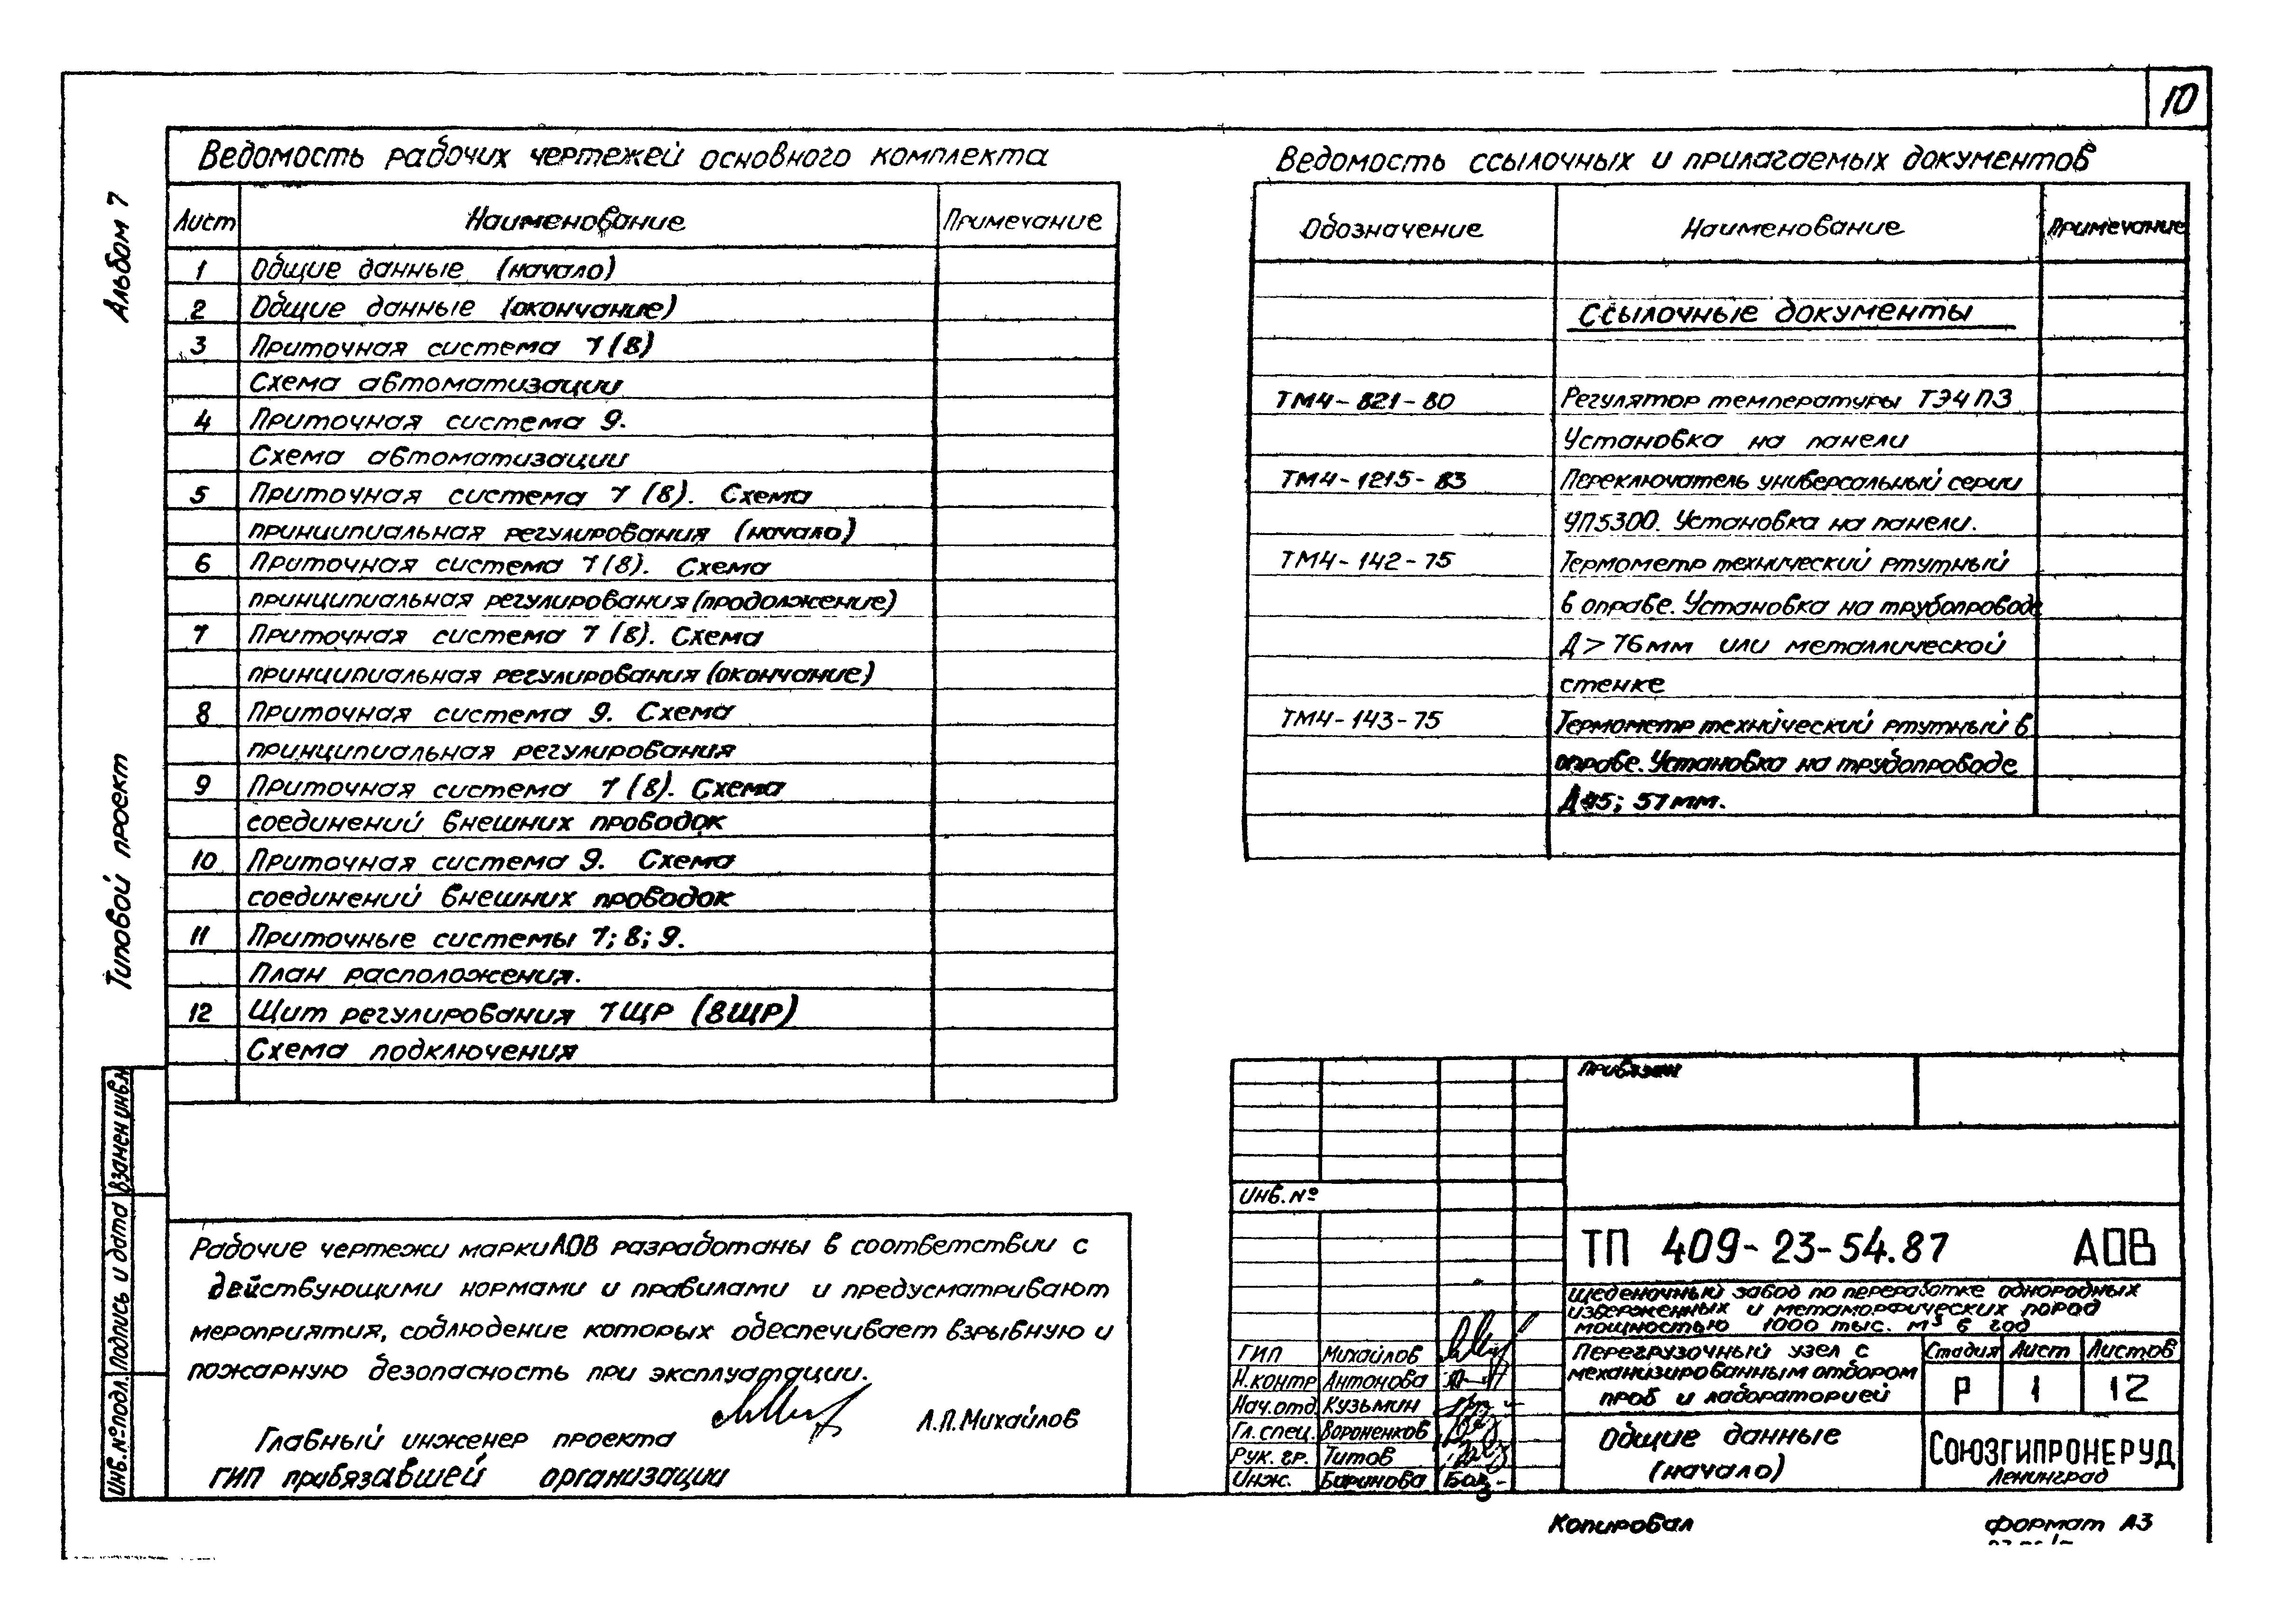 10
Альбом 7
Типовой проект
Ведомость рабочих чертежей основного комплекта
Лист Наименование Примечание
1 Общие данные (начало)
2 Общие данные (окончание)
3 Приточная система 7(8)
Схема автоматизации
4 Приточная система 9.
Схема автоматизации
5 Приточная система 7 (8). Схема
принципиальная регулирования (начало)
6 Приточная система 7(8). Схема
принципиальная регулирования (продолжение)
7 Приточная система 7 (8). Схема
принципиальная регулирования (окончание)
8 Приточная система 9. Схема
принципиальная регулирования
9 Приточная система 7 (8). Схема
соединений внешних проводок
10 Приточная система 9. Схема
соединений внешних проводок
11 Приточные системы 7; 8; 9.
План расположения.
12 Щит регулирования 7ЩР (8ЩР)
Схема подключения
Ведомость ссылочных и прилагаемых документов
Обозначение Наименование Примечание
Ссылочные документы
ТМ4-821-80 Регулятор температуры ТЭ4П3
Установка на панели
ТМ4-1215-83 Переключатель универсальный серии
УП5300. Установка на панели.
ТМ4-142-75 Термометр технический ртутный
в оправе. Установка на трубопроводе
Д > 76мм или металлической
стенке
ТМ4-143-75 Термометр технический ртутный в
оправе. Установка на трубопроводе
57мм.
Рабочие чертежи марки АОВ разработаны в соответствии с
действующими нормами и правилами и предусматривают
мероприятия, соблюдение которых обеспечивает взрывную и
пожарную безопасность при эксплуатации.
Главный инженер проекта Л.П.Михайлов
ГИП привязавшей организации
Взамен инв.№
Подпись и дата
Инв.№подл.
Привязан
Инв.№
ТП 409-23-54.87 АОВ
Щебеночный завод по переработке однородных
изверженных и метаморфических пород
мощностью 1000 тыс. м³ в год
ГИП Михайлов
Н.контр Антонова
Нач.отд. Кузьмин
Гл.спец. Вороненков
Рук. гр. Титов
Инж. Баринова
Перегрузочный узел с
механизированным отбором
проб и лабораторией
Стадия Лист Листов
Р 1 12
Общие данные
(начало)
СОЮЗГИПРОНЕРУД
Ленинград
Копировал
формат А3